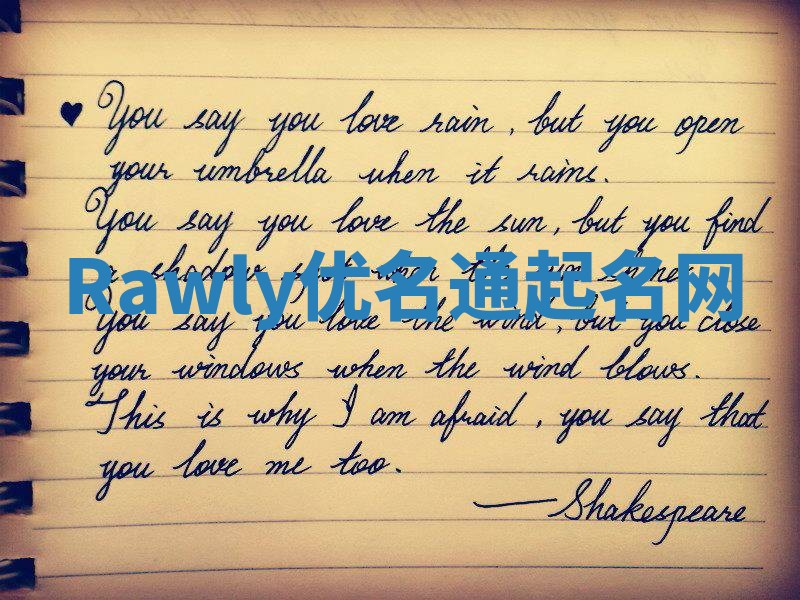 ♥ You say you love rain, but you open
your umbrella when it rains.
You say you love the sun, but you find
a shadow spot when the sun shines.
Rawly优名通起名网
You say you love the wind, but you close
your windows when the wind blows.
This is why I am afraid, you say that
you love me too.
—Shakespeare